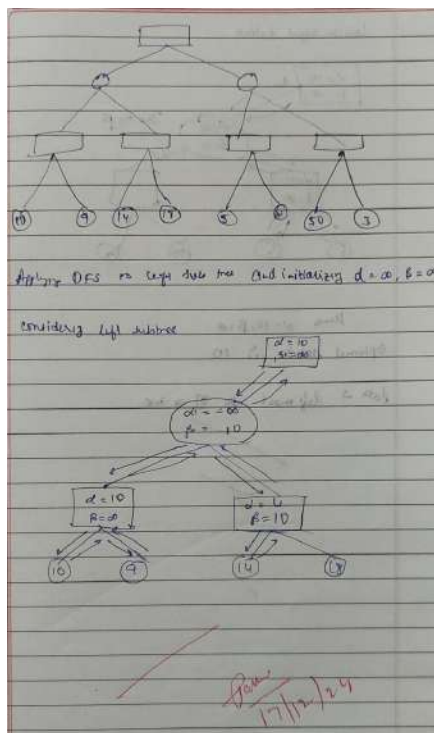 10 9 14 18 5 50 3
Applying DFS on left sub tree and initializing α = ∞, β = ∞
considering left subtree
α = 10
β = ∞
α = -∞
β = 10
α = 10
β = ∞
β = 10
10 9 14 18
17/12/24